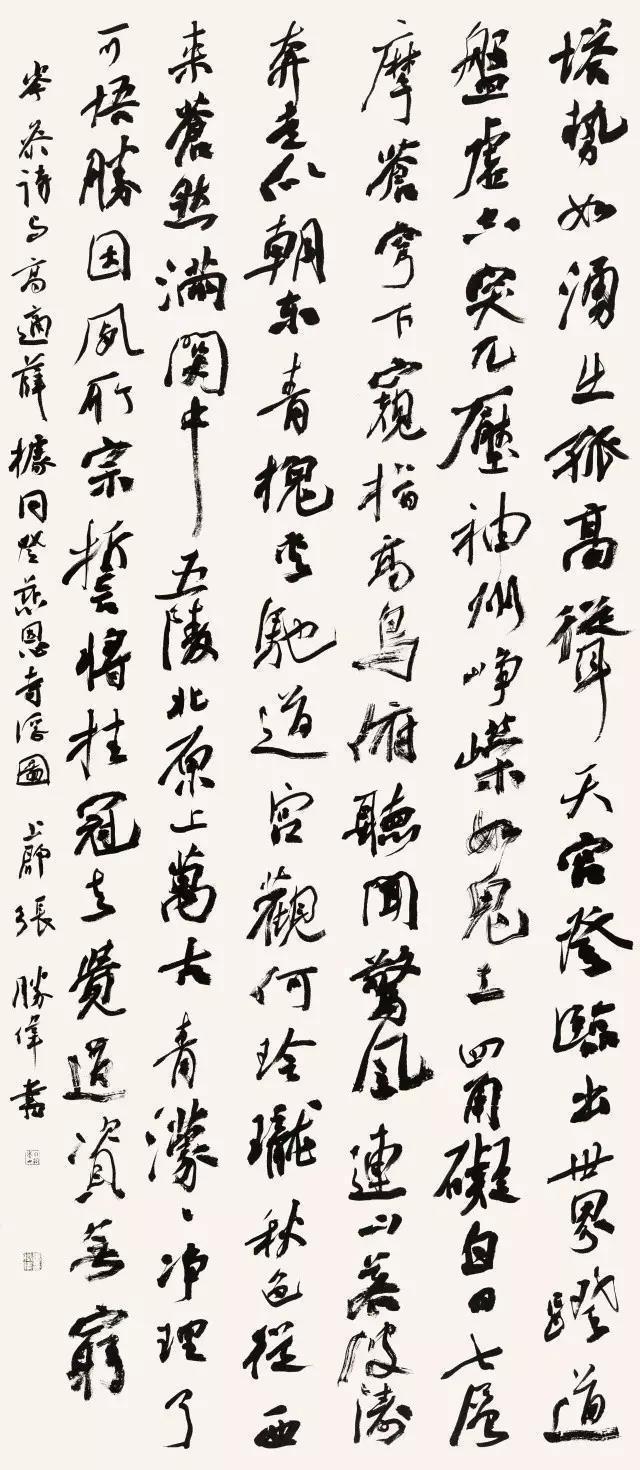 塔勢如湧出孤高聳天宮登臨出世界蹬道
盤虛空突兀壓神州崢嶸如鬼工四角礙白日七層
摩蒼穹下窺指高鳥俯聽聞驚風連山若波濤
奔走似朝東青槐夾馳道宮觀何玲瓏秋色從西
来蒼然滿關中五陵北原上萬古青濛〻净理了
可悟勝因夙所宗誓將挂冠去覺道資無窮
岑參詩与高適薛據同登慈恩寺浮圖 上郡張勝偉書